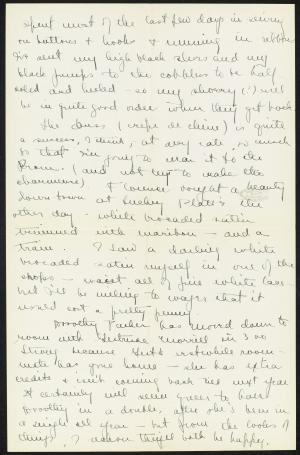 spent most of the last few days in sewing
on buttons & hooks & running in ribbons
I've sent my high black shoes and my
black pumps to the cobblers to be half
soled and heeled - so my shoes
be in quite good order when they get back
The dress (crepe de chine) is quite
a success, I think, at any rate, so much
so that I'm going to wear it to the
Prom. (and not try to make the
charmeuse) & bought a beauty
down town at Luckey Platt's the
other day - white brocaded satin
trimmed with maribou - and a
train. I saw a darling white
brocaded satin myself in one of the
shops - waist all of fine white lace -
but I'll be willing to wager that it
would cost a pretty penny.
Dorothy Parker has moved down to
room with Gertrude Morrell in 300
Strong because erstwhile room-
mate has gone home - she has extra
credits & isn't coming back till next year
It certainly will seem queer to have
Dorothy in a double, after she's been in
a single all year - but from the looks of
things, I reckon they'll both be happy.